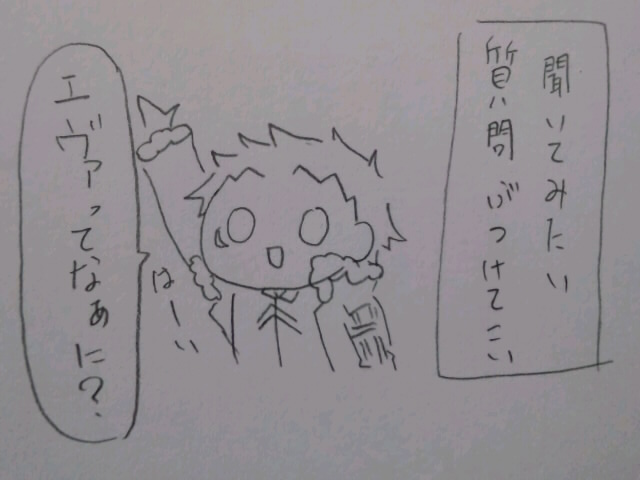 聞いてみたい
質問ぶつけてこい
はーい
エヴァってなぁに?